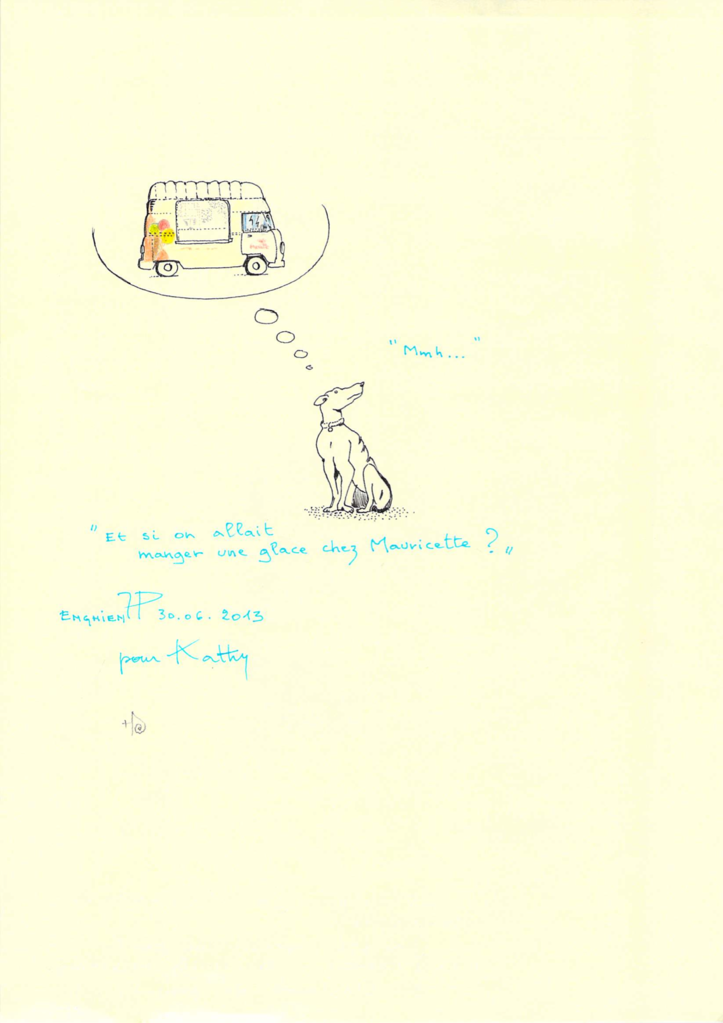 "Mmh..."
"Et si on allait
manger une glace chez Mauricette ?"
ENGHIEN JP 30.06.2013
pour Kathy